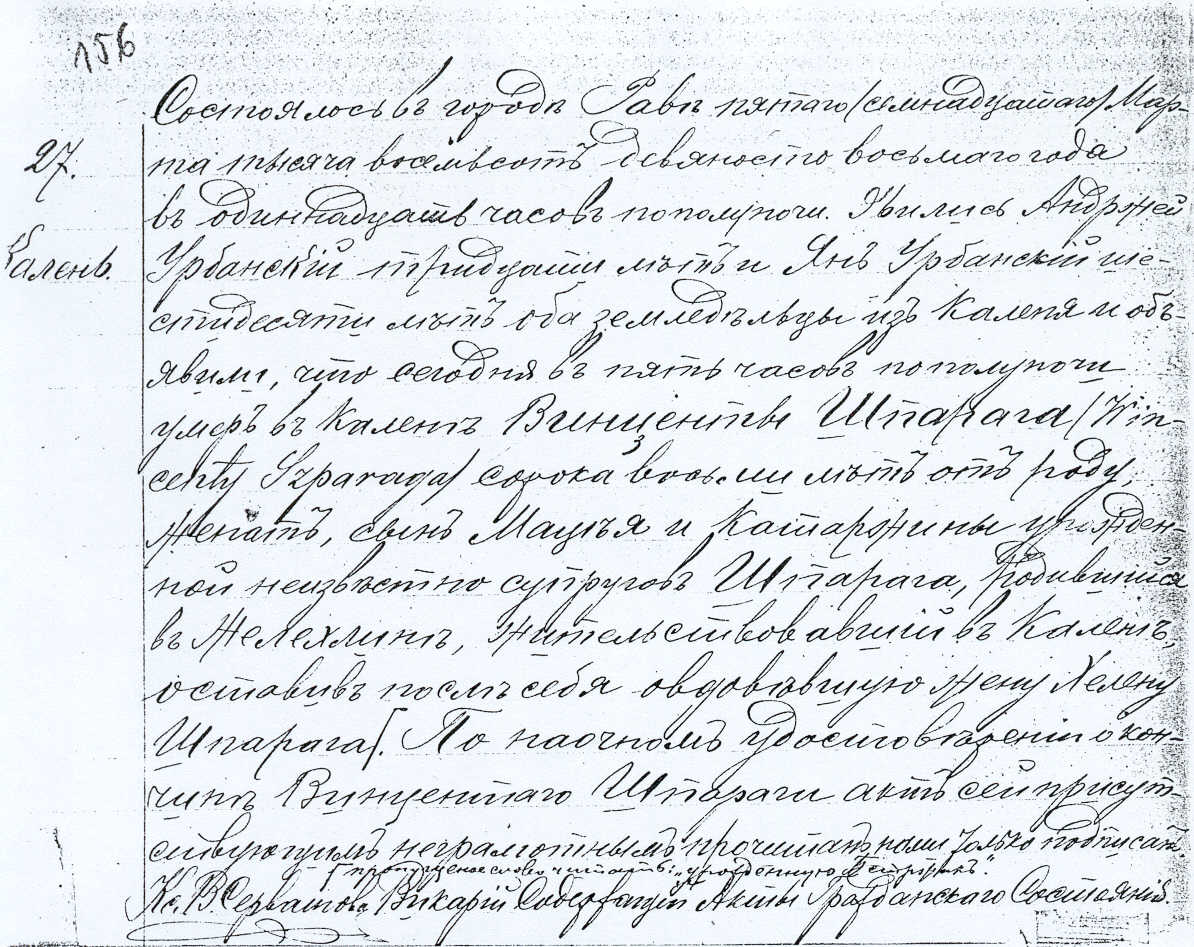 156
Состоялось въ городѣ Равѣ пятаго (семнадцатаго) Мар-
27.
та тысяча восемьсотъ девяносто восьмаго года
въ одиннадцать часовъ пополуночи. Явились Андржей
Калень.
Урбанскій тридцати лѣтъ и Янъ Урбанскій ше-
стидесяти лѣтъ оба земледѣльцы изъ Каленя и объ-
явили, что сегодня въ пять часовъ пополуночи
умеръ въ Каленѣ Винценты Шпарага (Win-
centy Szparaga) сорока восьми лѣтъ отъ роду,
женатъ, сынъ Мацѣя и Катаржины урожден-
ной неизвѣстно супруговъ Шпарага, родившійся
въ Желехлинѣ, жительствовавшій въ Каленѣ,
оставивъ послѣ себя овдовѣвшую жену Хелену
Шпарага/. По наочномъ удостовѣреніи о кон-
чинѣ Винцентаго Шпараги актъ сей присут-
ствующимъ неграмотнымъ прочитанъ нами только подписанъ.
/ пропущенное слово читать: „урожденную
Кс. В. Викарій Содержащій Акты Гражданскаго Состоянія.